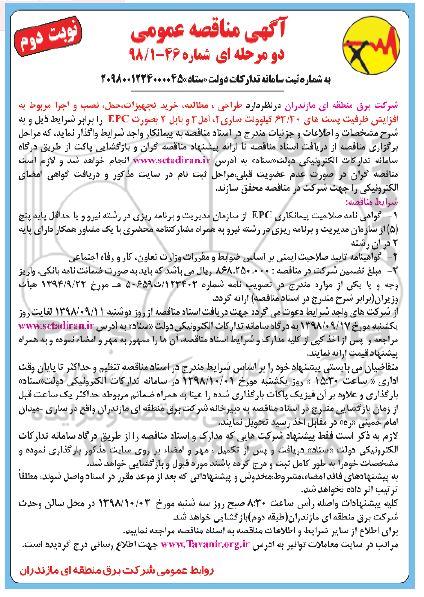 نوبت دوم
آگهی مناقصه عمومی
دو مرحله ای شماره ۴۶-۹۸/۱
به شماره ثبت سامانه تدارکات دولت «ستاد» ۲۰۹۸۰۰۱۲۲۴۰۰۰۰۴۵
شرکت برق منطقه ای مازندران درنظردارد طراحی ، مطالعه، خرید تجهیزات،حمل، نصب و اجرا مربوط به
افزایش ظرفیت پست های ۶۳/۲۰ کیلوولت ساری۲، آمل۳ و بابل ۲ بصورت EPC را برابر شرایط ذیل و به
شرح مشخصات و اطلاعات و جزئیات مندرج در اسناد مناقصه به پیمانکار واجد شرایط واگذار نماید، که مراحل
برگزاری مناقصه از دریافت اسناد مناقصه تا ارائه پیشنهاد مناقصه گران و بازگشایی پاکت از طریق درگاه
سامانه تدارکات الکترونیکی دولت«ستاد» به آدرس www.setadiran.ir انجام خواهد شد و لازم است
مناقصه گران در صورت عدم عضویت قبلی،مراحل ثبت نام در سایت مذکور و دریافت گواهی امضای
الکترونیکی را جهت شرکت در مناقصه محقق سازند.
شرایط مناقصه:
۱- گواهی نامه صلاحیت پیمانکاری EPC از سازمان مدیریت و برنامه ریزی در رشته نیرو و یا حداقل پایه پنج
(۵) از سازمان مدیریت و برنامه ریزی در رشته نیرو به همراه مشارکتنامه محضری با یک مشاور همکار دارای پایه
۲ در آن رشته
۲- گواهینامه تایید صلاحیت ایمنی بر اساس ضوابط و مقررات وزارت تعاون، کار و رفاه اجتماعی
۳- مبلغ تضمین شرکت در مناقصه : ۸۶۸،۲۵۰،۰۰۰ ریال می باشد که باید به صورت ضمانت نامه بانکی، واریز
وجه و یا یکی از موارد مندرج در تصویب نامه شماره ۱۲۳۴۰۲/ت۵۰۶۵۹ هـ مورخ ۱۳۹۴/۹/۲۲ هیات
وزیران(برابر شرح مندرج در اسناد مناقصه) ارائه گردد.
از شرکت های واجد شرایط دعوت می گردد جهت دریافت اسناد مناقصه از روز دوشنبه ۱۳۹۸/۰۹/۱۱ لغایت روز
یکشنبه مورخ ۱۳۹۸/۰۹/۱۷ به درگاه سامانه تدارکات الکترونیکی دولت «ستاد» به آدرس www.setadiran.ir
مراجعه و پس از اخذ کپی از کلیه مدارک و شرایط اسناد مناقصه،آن ها را ممهور به مهر و امضاء نموده و به همراه
پیشنهاد قیمت ارائه نمایند.
متقاضیان می بایستی پیشنهاد خود را بر اساس شرایط مندرج در اسناد مناقصه تنظیم و حداکثر تا پایان وقت
اداری « ساعت ۱۵:۳۰ » روز یکشنبه مورخ ۱۳۹۸/۱۰/۰۱ در سامانه تدارکات الکترونیکی دولت«ستاد»
بارگذاری و علاوه بر آن فیزیک پاکات بارگذاری شده را عیناً به همراه ضمائم مربوطه حداکثر یک ساعت قبل
از زمان بازگشایی مندرج در اسناد مناقصه به دبیرخانه شرکت برق منطقه ای مازندران واقع در ساری -میدان
امام خمینی «ره» در مقابل اخذ رسید تحویل نمایند.
لازم به ذکر است فقط پیشنهاد شرکت هایی که مدارک و اسناد مناقصه را از طریق درگاه سامانه تدارکات
الکترونیکی دولت «ستاد» دریافت و پس از تکمیل ، مهر و امضاء بر روی سایت مذکور بارگذاری نموده و
مشخصات خود را به طور کامل ثبت و درج کرده باشند مورد قبول و بازگشایی خواهد شد.
به پیشنهادهای فاقد امضاء،مشروط،مخدوش و پیشنهاداتی که بعد از موعد مقرر در اسناد واصل شوند، مطلقاً
ترتیب اثر داده نخواهد شد.
کلیه پیشنهادات واصله رأس ساعت ۸:۳۰ صبح روز سه شنبه مورخ ۱۳۹۸/۱۰/۰۳ در محل سالن وحدت
شرکت برق منطقه ای مازندران(طبقه دوم)بازگشایی خواهد شد.
برای اطلاع از سایر شرایط و اطلاعات مناقصه به اسناد مناقصه مراجعه نمایید.
مراتب در سایت معاملات توانیر به آدرس www.Tavanir.org.ir جهت اطلاع رسانی درج گردیده است.
روابط عمومی شرکت برق منطقه ای مازندران